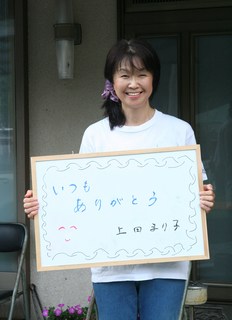 いつも
ありがとう
上田まり子